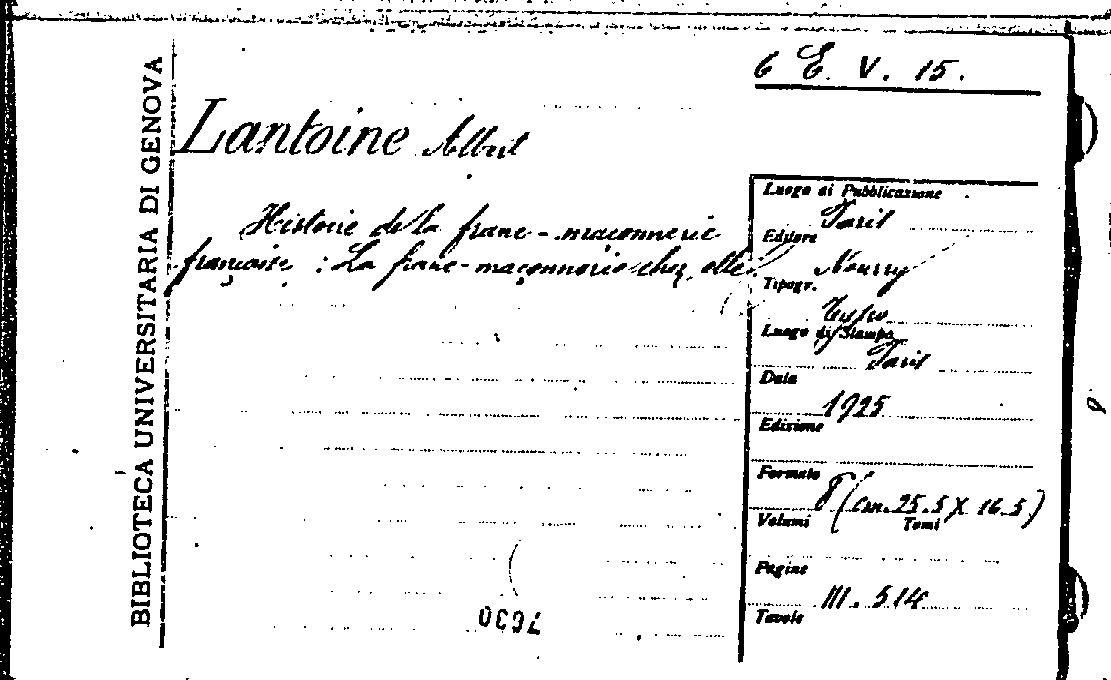 6 E. V. 15.
BIBLIOTECA UNIVERSITARIA DI GENOVA
Lantoine Albert
Histoire de la franc-maçonnerie
française : La franc-maçonnerie chez elle.
Luogo di Pubblicazione
Paris
Editore
Nourry
Tipogr.
Luogo di Stampa
Paris
Data
1925
Edizione
Formato
8 (cm. 25.5 X 16.5)
Volumi Tomi
Pagine
III. 514
Tavole